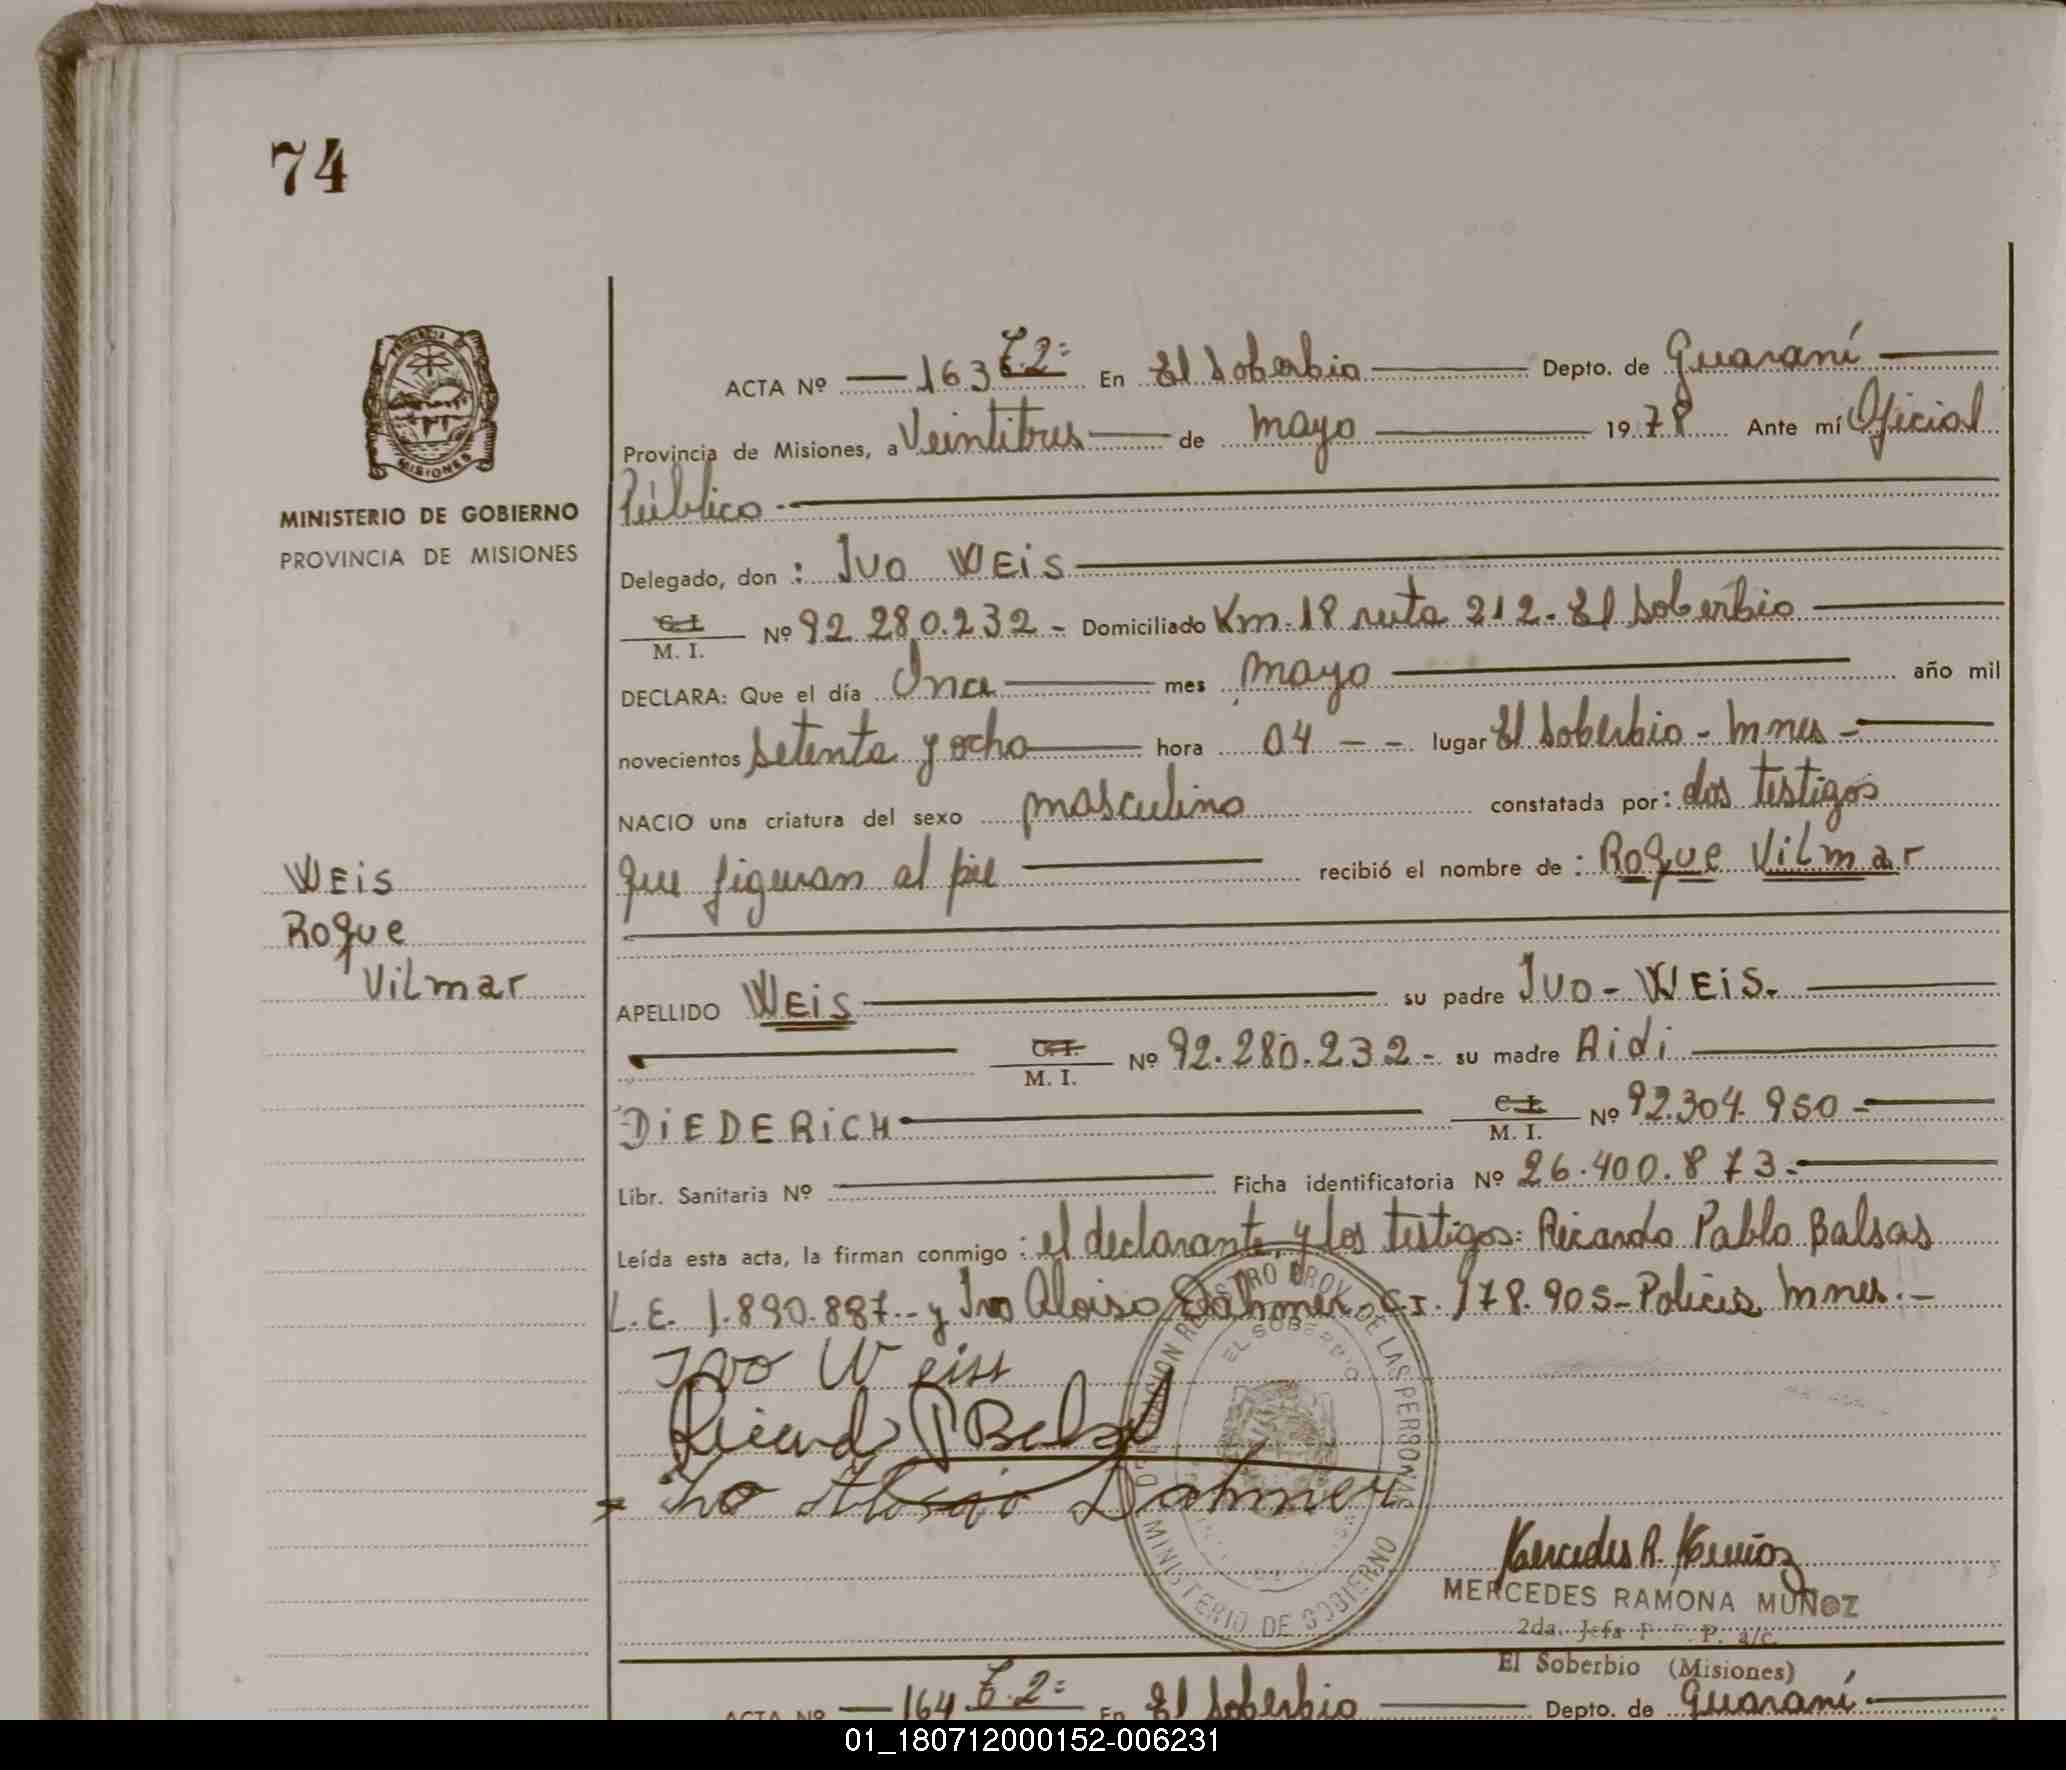 74
PROVINCIA DE
MISIONES
MINISTERIO DE GOBIERNO
PROVINCIA DE MISIONES
ACTA Nº 163 T. 2º En El Soberbio Depto. de Guaraní
Provincia de Misiones, a Veintitres de mayo 1978 Ante mí Oficial
Público
Delegado, don : Ivo WEiS
C. I. / M. I. Nº 92 280.232 - Domiciliado Km. 18 ruta 212 - El Soberbio
DECLARA: Que el día Once mes mayo año mil
novecientos setenta y ocho hora 04 - - lugar El Soberbio - Mnes -
NACIO una criatura del sexo masculino constatada por : dos testigos
que figuran al pie recibió el nombre de : Roque Vilmar
WEiS
Roque
Vilmar
APELLIDO WEiS su padre Ivo - WEiS.
C. I. / M. I. Nº 92.280.232 - su madre Aidi
DiEDERiCH C. I. / M. I. Nº 92.304.950 -
Libr. Sanitaria Nº Ficha identificatoria Nº 26.400.873 -
Leída esta acta, la firman conmigo : el declarante, y los testigos: Ricardo Pablo Balsas
L.E. 1.890.887.- y Ivo Aloiso Dahmer - C.I. 178.905 - Policia Mnes. -
Ivo Weiss
Ricardo P Balsas
Ivo Dahmer
REGISTRO PROV. DE LAS PERSONAS
EL SOBERBIO
MINISTERIO DE GOBIERNO
Mercedes R. Muñoz
MERCEDES RAMONA MUÑOZ
2da. Jefa P. a/c.
El Soberbio (Misiones)
ACTA Nº 164 T. 2º En El Soberbio Depto. de Guaraní
01_180712000152-006231